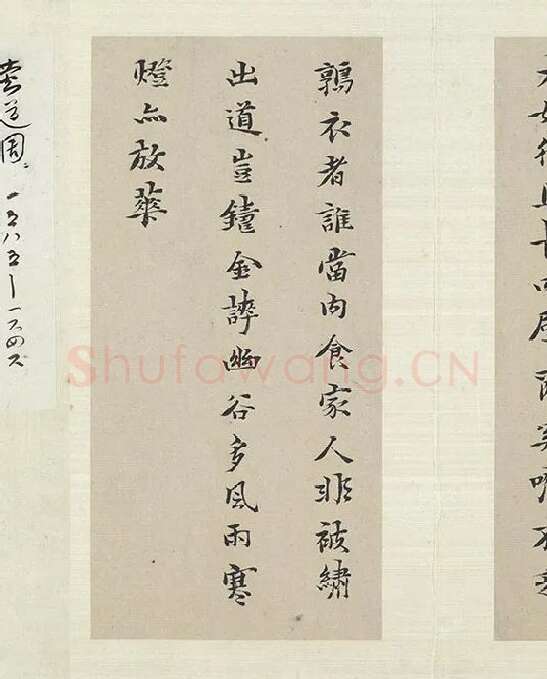 鶉衣者誰當肉食家人非被繡
出道豈鐘金誶幽谷多風雨寒
燈亦放華
黄道周。一五八五—一六四六
Shufawang.CN